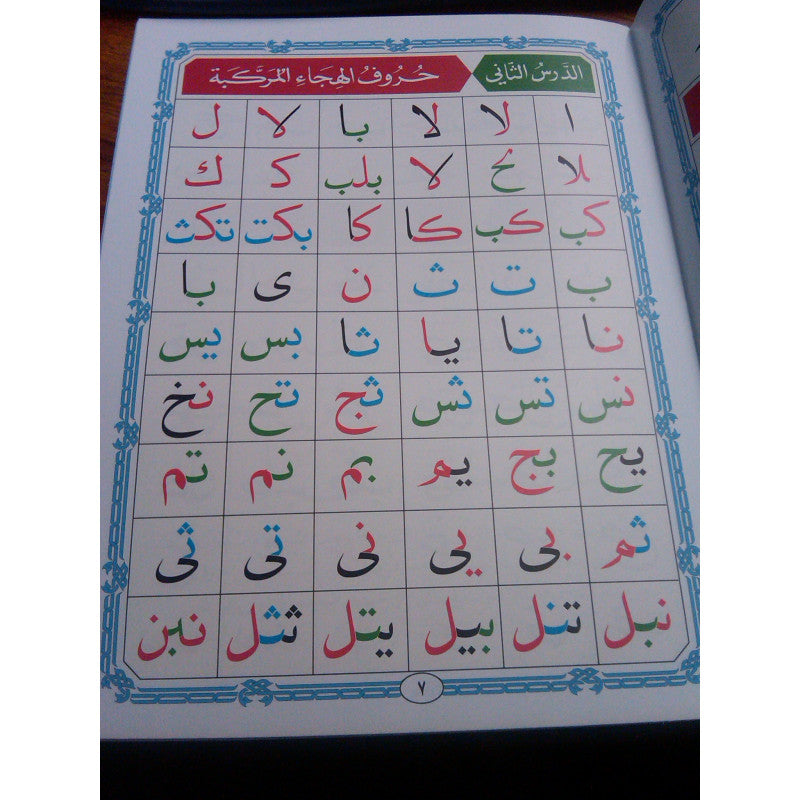 الدَّرسُ الثَّانِي حُرُوفُ الهِجَاءِ المُرَكَّبَة
ا لا لا با لا ل
لا بلب ك ك
كب كب كا كا بكت تكث
ب ت ث ن ى با
نا تا يا ثا بس يس
نس تس ثس ثج تح نخ
يح بج يم بم نم تم
ثم بى يى نى تى ثى
نبل تنل بيل يتل ثثل نبن
٧